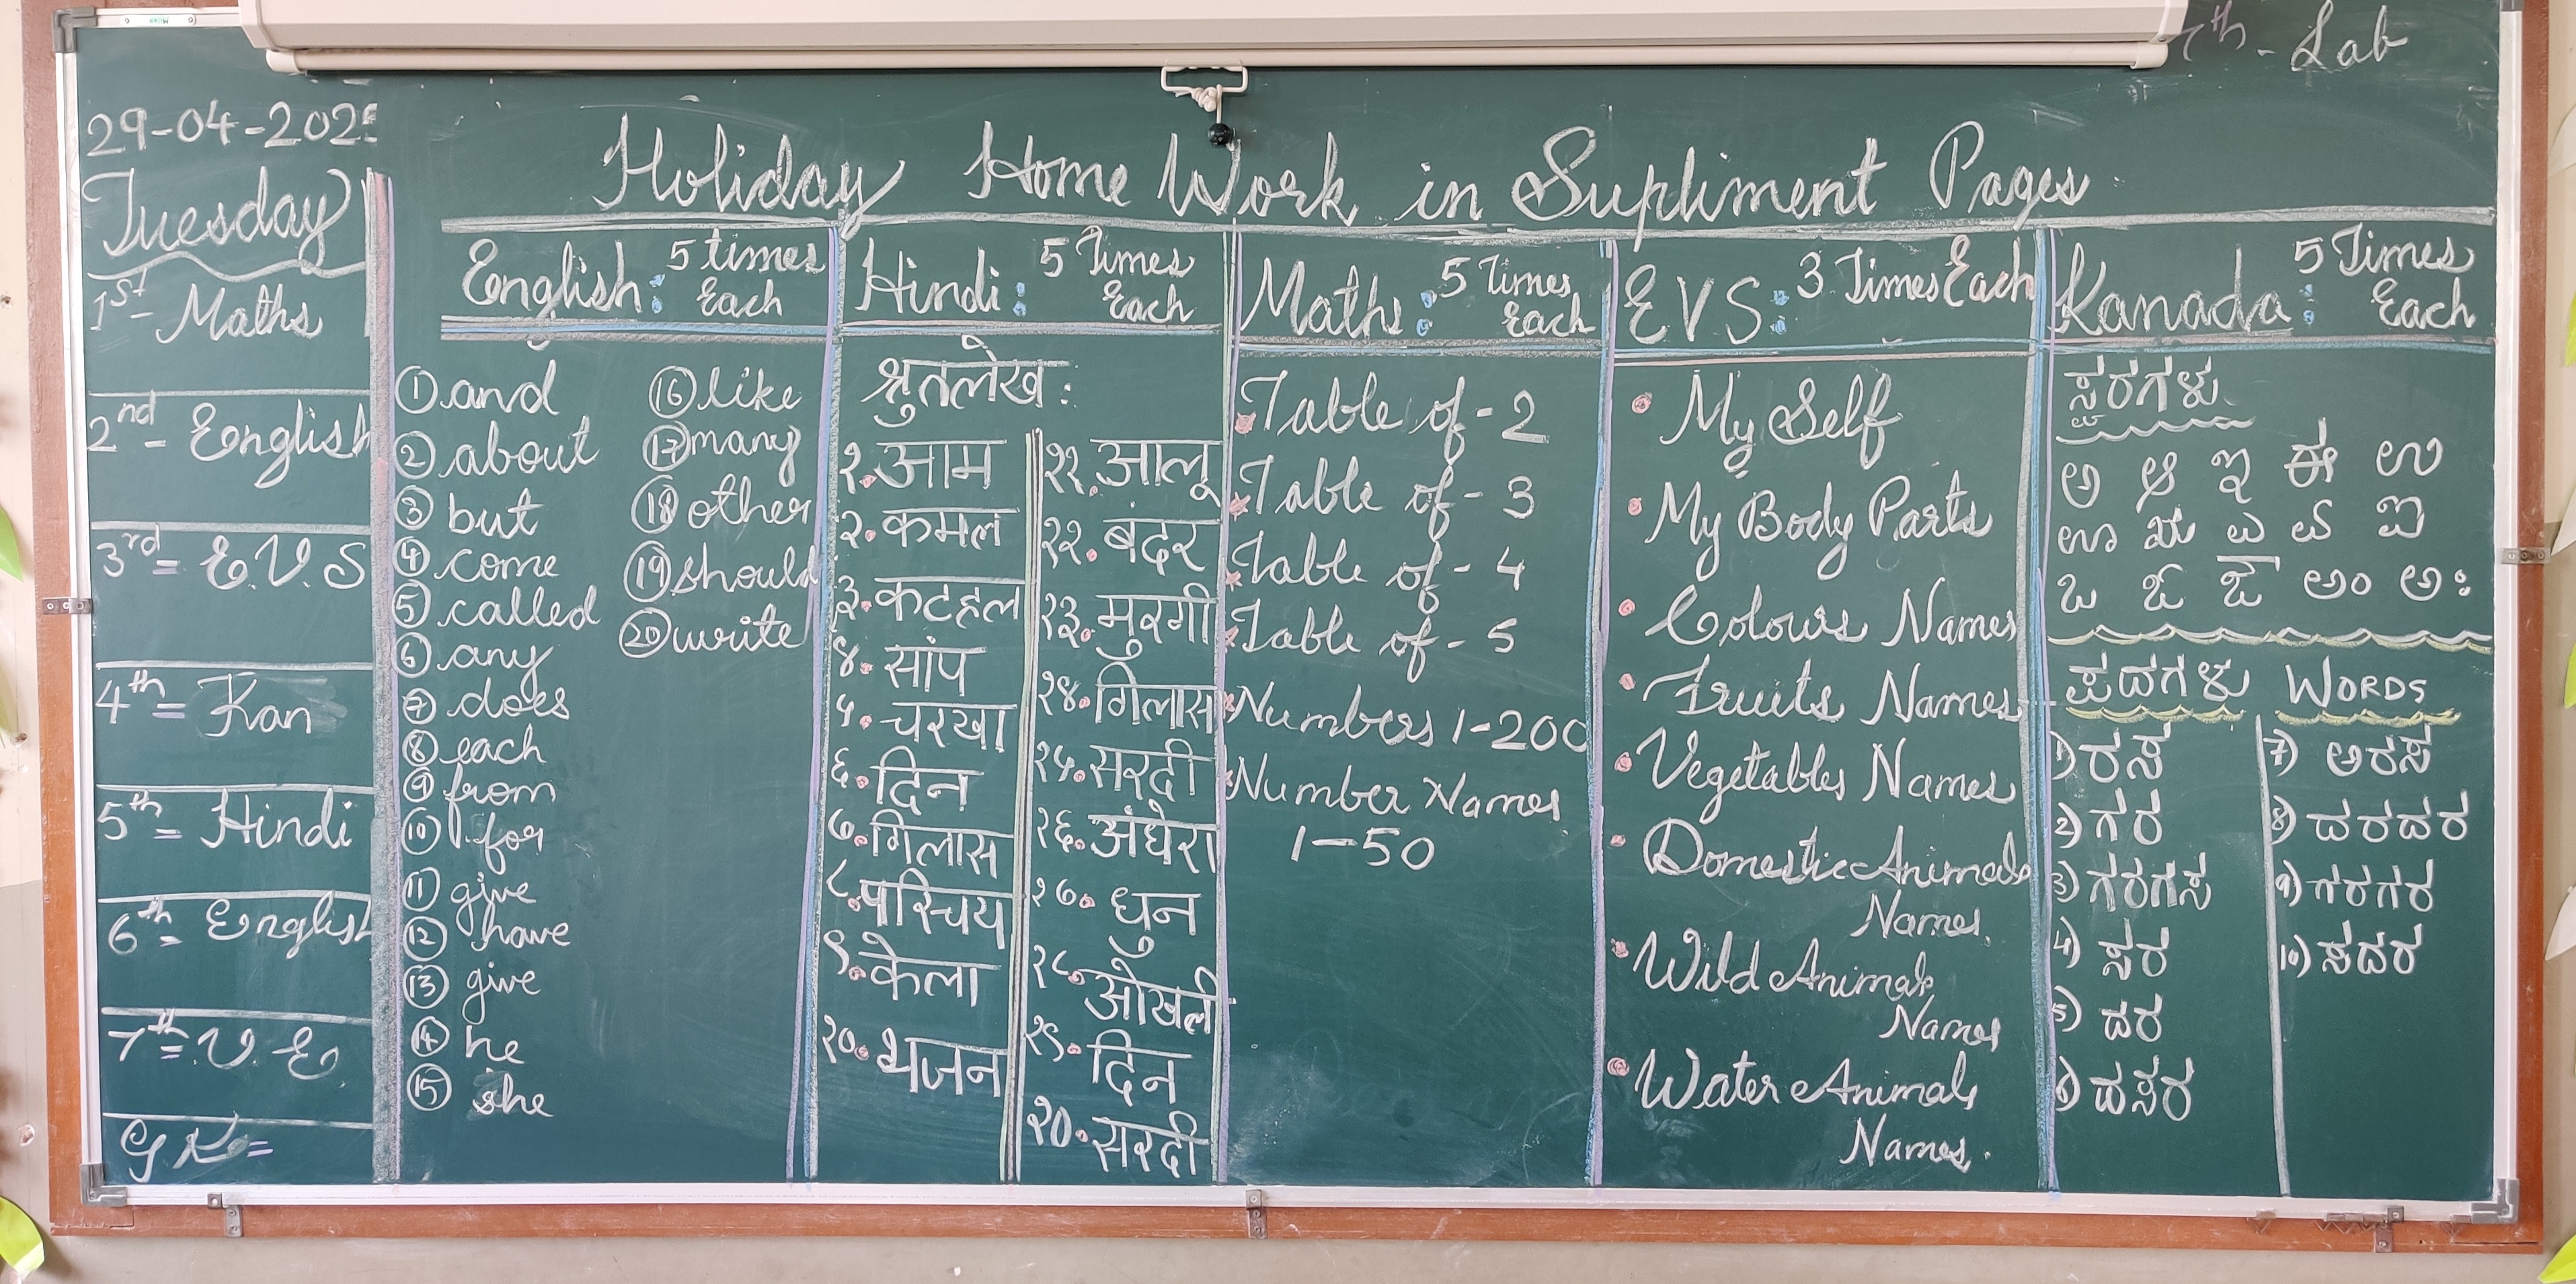 th - Lab
29-04-2025
Tuesday
1st - Maths
2nd - English
3rd = E.V.S
4th = Kan
5th = Hindi
6th = English
7th = V.E.
G K =
Holiday Home Work in Supliment Pages
English : 5 times Each
① and
② about
③ but
④ come
⑤ called
⑥ any
⑦ does
⑧ each
⑨ from
⑩ for
⑪ give
⑫ have
⑬ give
⑭ he
⑮ she
⑯ like
⑰ many
⑱ other
⑲ should
⑳ write
Hindi : 5 Times Each
श्रुतलेख :
१. आम
२. कमल
३. कटहल
४. सांप
५. चरखा
६. दिन
७. गिलास
८. परिचय
९. केला
१०. भजन
११. आलू
१२. बंदर
१३. मुरगी
१४. गिलास
१५. सरदी
१६. अंधेरा
१७. धुन
१८. ओखली
१९. दिन
२०. सरदी
Maths : 5 Times Each
Table of - 2
Table of - 3
Table of - 4
Table of - 5
Numbers 1-200
Number Names
1-50
EVS : 3 Times Each
My Self
My Body Parts
Colours Names
Fruits Names
Vegetables Names
Domestic Animals
Names.
Wild Animals
Names
Water Animals
Names.
Kanada : 5 Times Each
ಸ್ವರಗಳು
ಅ ಆ ಇ ಈ ಉ
ಊ ಋ ಎ ಏ ಐ
ಒ ಓ ಔ ಅಂ ಅಃ
ಪದಗಳು WORDS
1) ರಸ
2) ಗರ
3) ಗರಗಸ
4) ಸರ
5) ದರ
6) ದಸರ
7) ಅರಸ
8) ದರದರ
9) ಗರಗರ
10) ಸದರ